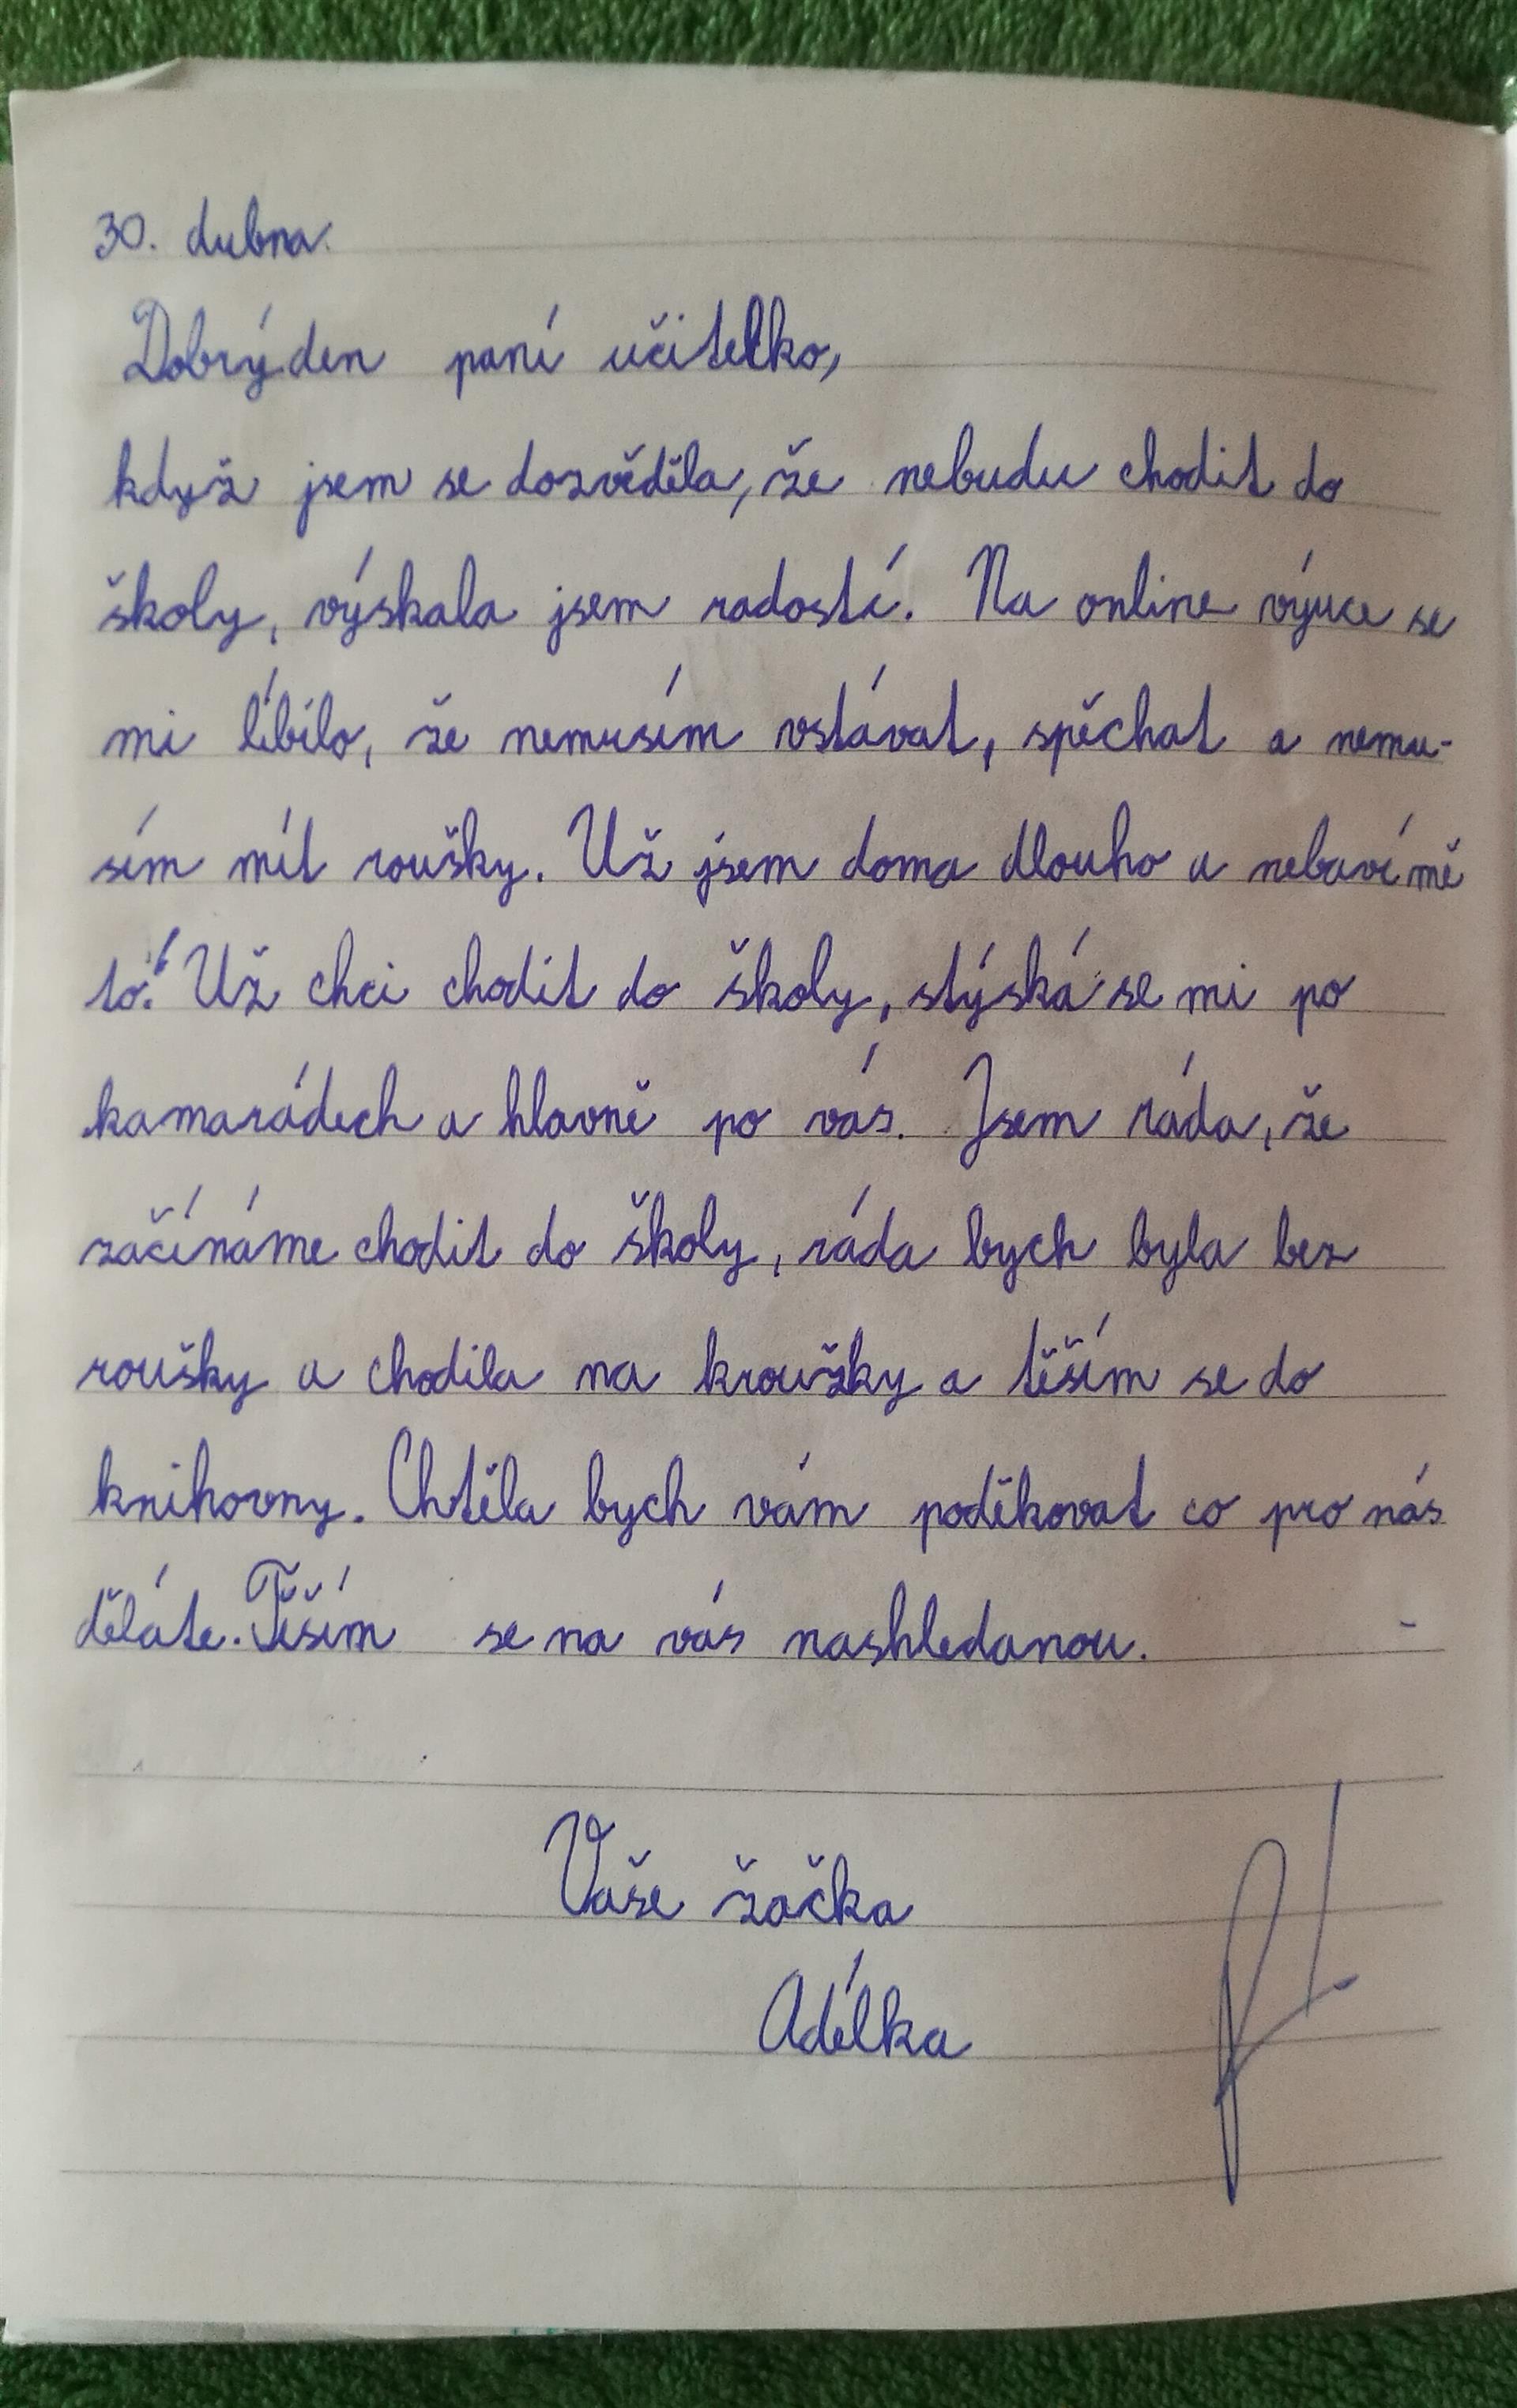 30. dubna.
Dobrý den paní učitelko,
když jsem se dozvěděla, že nebudu chodit do
školy, výskala jsem radostí. Na online výuce se
mi líbilo, že nemusím vstávat, spěchat a nemu-
sím mít roušky. Už jsem doma dlouho a nebaví mě
to! Už chci chodit do školy, stýská se mi po
kamarádech a hlavně po vás. Jsem ráda, že
začínáme chodit do školy, ráda bych byla bez
roušky a chodila na kroužky a těším se do
knihovny. Chtěla bych vám poděkovat co pro nás
děláte. Těším se na vás nashledanou.
Vaše žačka
Adélka